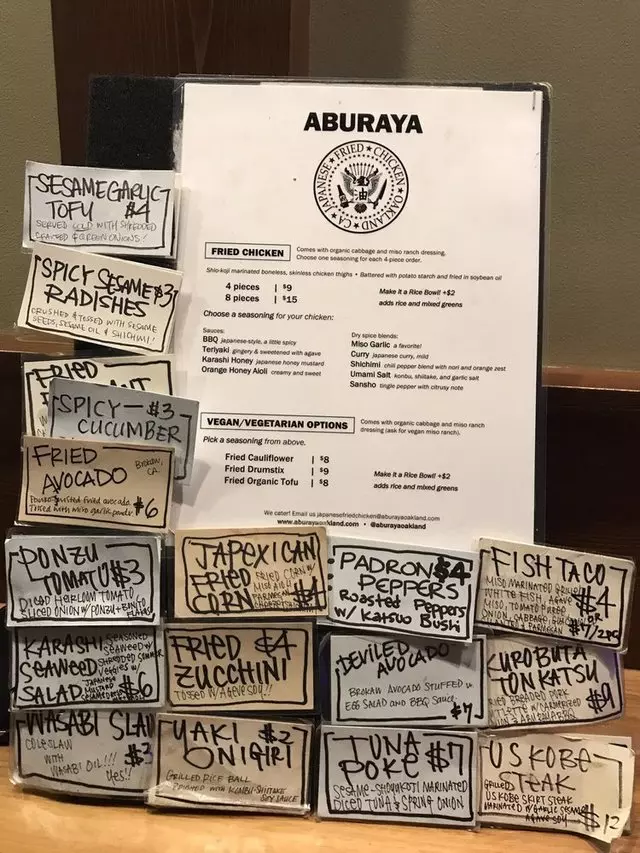 ABURAYA
JAPANESE FRIED CHICKEN
OAKLAND, CA
油
FRIED CHICKEN
Comes with organic cabbage and miso ranch dressing.
Choose one seasoning for each 4 piece order.
Shio-koji marinated boneless, skinless chicken thighs • Battered with potato starch and fried in soybean oil
4 pieces | $9
8 pieces | $15
Make it a Rice Bowl! +$2
adds rice and mixed greens
Choose a seasoning for your chicken:
Sauces:
BBQ japanese-style, a little spicy
Teriyaki gingery & sweetened with agave
Karashi Honey japanese honey mustard
Orange Honey Aioli creamy and sweet
Dry spice blends:
Miso Garlic a favorite!
Curry japanese curry, mild
Shichimi chili pepper blend with nori and orange zest
Umami Salt konbu, shiitake, and garlic salt
Sansho tingle pepper with citrusy note
VEGAN/VEGETARIAN OPTIONS
Comes with organic cabbage and miso ranch
dressing (ask for vegan miso ranch).
Pick a seasoning from above.
Fried Cauliflower | $8
Fried Drumstix | $9
Fried Organic Tofu | $8
Make it a Rice Bowl! +$2
adds rice and mixed greens
We cater! Email us at japanesefriedchicken@aburayaoakland.com
www.aburayaoakland.com • @aburayaoakland
SESAME GARLIC
TOFU $4
SERVED COLD WITH SHREDDED
& GREEN ONIONS!
SPICY SESAME $3
RADISHES
CRUSHED & TOSSED WITH SESAME
SEEDS, SESAME OIL & SHICHIMI!
FRIED
SPICY— $3
CUCUMBER
FRIED
AVOCADO
BROKAW,
CA.
fried avocado
Tossed with miso garlic powder $6
PONZU
TOMATO $3
DICED HEIRLOOM TOMATO
SLICED ONION W/ PONZU +
JAPEXICAN
FRIED
CORN
FRIED CORN W/
MISO AIOLI
PARMESAN
$4
PADRON $4
PEPPERS
Roasted Peppers
W/ Katsuo Bushi
FISH TACO
MISO MARINATED GRILLED
WHITE FISH, AGAVE
MISO, TOMATO PUREE
ONION, CABBAGE,
& PARMESAN
$4
OR
$7/2PCS
KARASHI
SEAWEED
SALAD
SEASONED
SEAWEED W/
SHREDDED SUMMER
VEGGIES W/
JAPANESE
MUSTARD
$6
FRIED $4
ZUCCHINI
TOSSED W/ AGAVE SOY!!
DEVILED
AVOCADO
BROKAW AVOCADO STUFFED W/
EGG SALAD AND BBQ SAUCE
$7
KUROBUTA
TONKATSU
FRIED BREADED PORK
CUTLET W/ CARAMELIZED
$9
WASABI SLAW
COLESLAW
WITH
WASABI OIL!!!
Yes!!
$3
YAKI $2
ONIGIRI
GRILLED RICE BALL
BRUSHED WITH KONBU-SHIITAKE
SOY SAUCE
TUNA $7
POKE
SESAME-SHOYUKOJI MARINATED
DICED TUNA & SPRING ONION
US KOBE
STEAK
GRILLED
US KOBE SKIRT STEAK
MARINATED W/ GARLIC SESAME
AGAVE SOY
$12